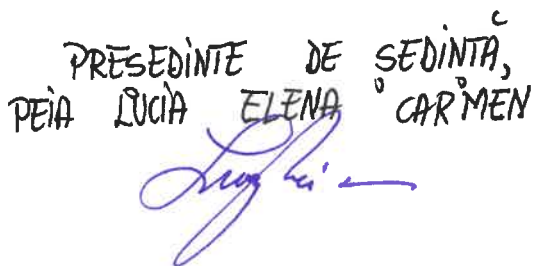 PRESEDINTE DE SEDINTĂ,
PEIA LUCIA ELENA CARMEN